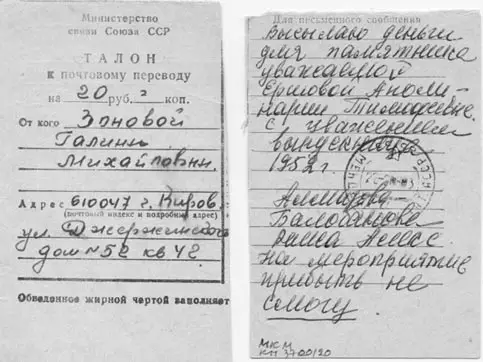 Министерство
связи Союза ССР
ТАЛОН
к почтовому переводу
на 20 руб. коп.
От кого Зоновой
Галины
Михайловны.
Адрес 610047 г. Киров
(почтовый индекс и подробный адрес)
ул. Дзержинского
дом № 52 кв 42
Обведенное жирной чертой заполняет
Для письменного сообщения
Высылаю деньги
для памятника
уважаемой
Ершовой Аполи-
нарии Тимофеевне.
С уважением
выпускница
1952 г.
Балобанова
На мероприятие
прибыть не
смогу.
МКМ
КП 3700/20